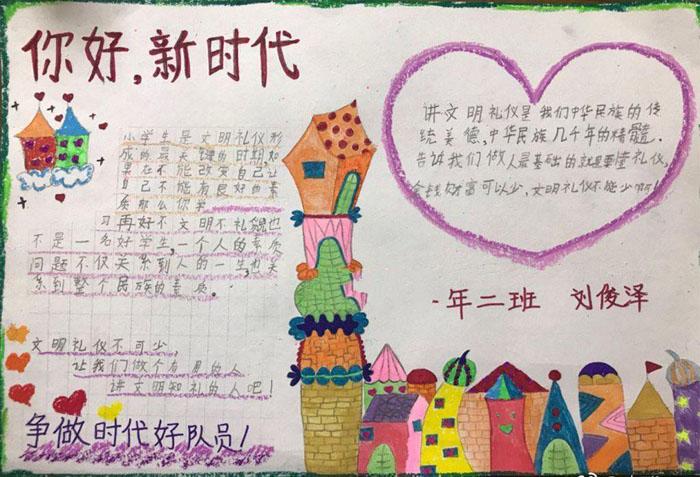 你好,新时代
小学生是文明礼仪形
成的最关键的时期如
果在不能改变自己让
自己不能有良好的素
质那么你学
习再好不文明不礼貌也
不是一名好学生,一个人的素质
问题不仅关系到人的一生,也关
系到整个民族的素质。
文明礼仪不可少,
让我们做个有用的人
讲文明知礼的人吧!
争做时代好队员!
讲文明礼仪是我们中华民族的传
统美德,中华民族几千年的精髓.
告诉我们做人最基础的就是要懂礼仪,
金钱财富可以少,文明礼仪不能少啊!
一年二班 刘俊泽